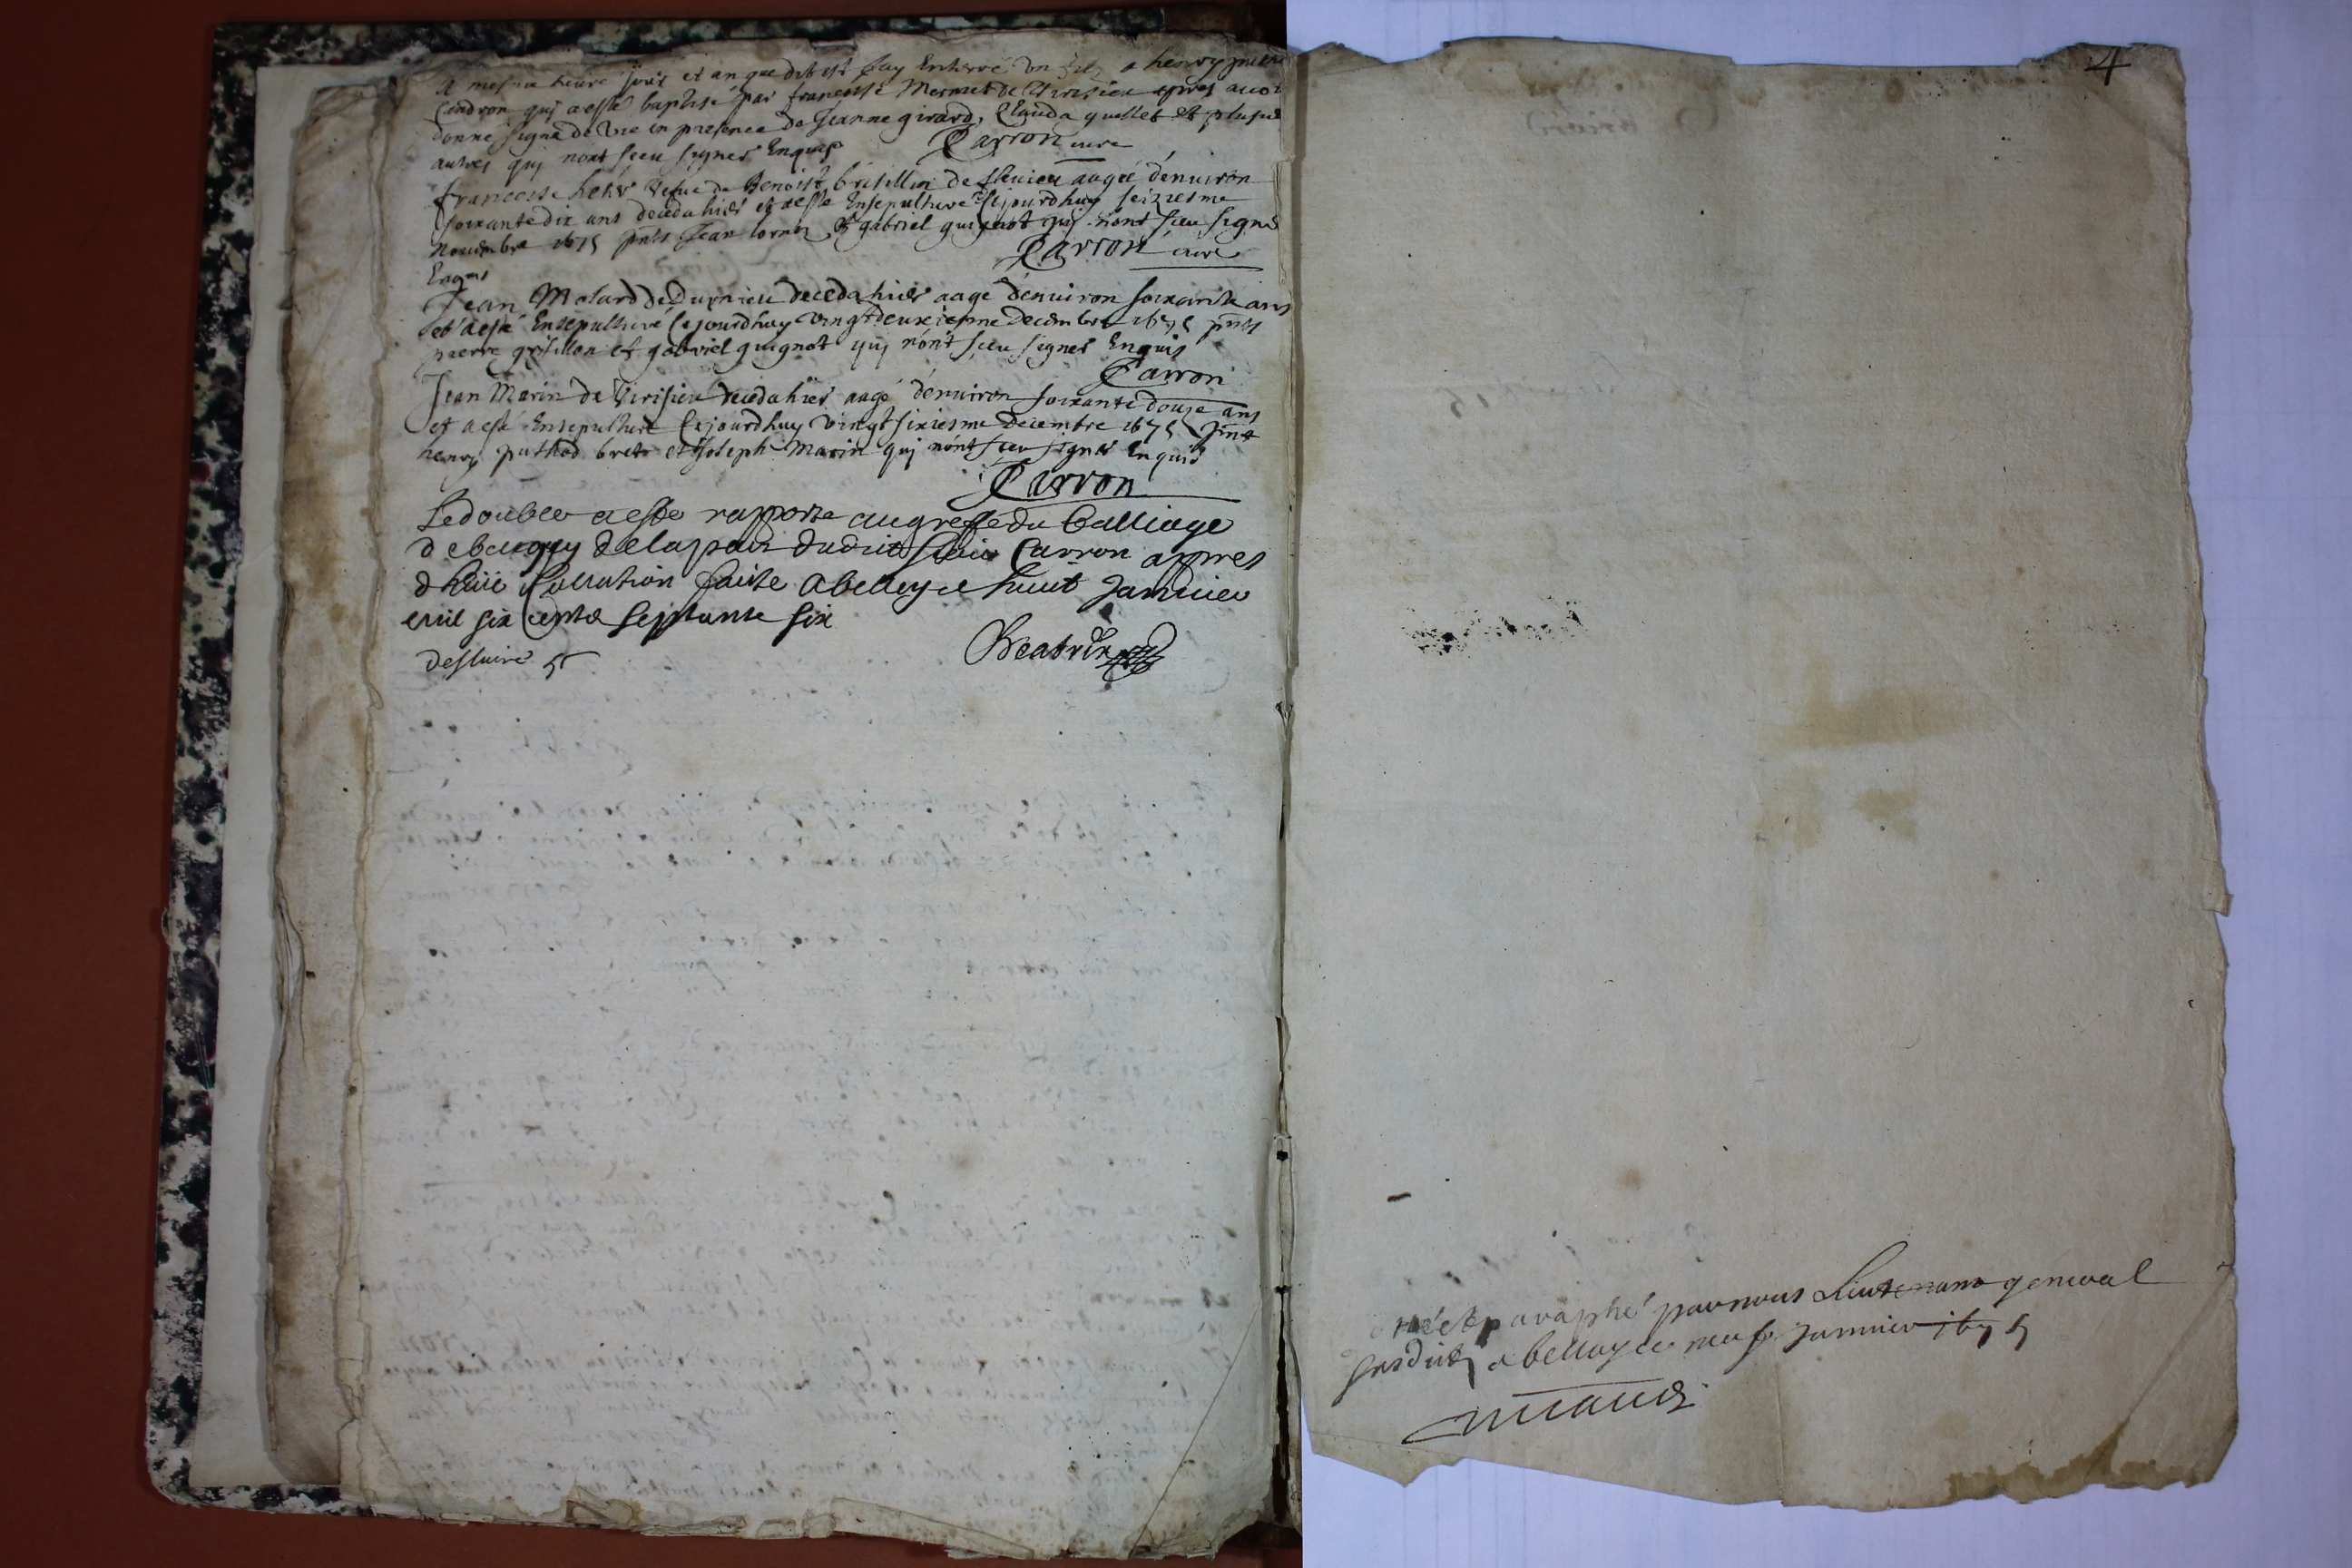 A mesme heure jour et an que dit est jay Enterré un filz a henry
Cindron quj a esté baptisé par francoise Mermet de Virisieu apres avoir
donné signe de vie en presence de Jeanne girard, Clauda quellet et plusrs
autres quj nont sceu signer Enquis
Carron cure
francoise vefue de Benoist brisillon de Slenieu aagée denuiron
soixante dix ans deceda hier et a esté Ensepulture Cejourdhuy seiziesme
Nouembre 1675 pnts Jean Cornu et gabriel guignot quj nont sceu signer
Enquis
Carron cure
Jean Molard de Dugnieu deceda hier aagé denuiron soixante ans
et a esté Ensepulturé Cejourdhuy vingtdeuxiesme Decembre 1675 pnts
pierre grisillon et gabriel guignot quj nont sceu signer Enquis
Carron
Jean Marin de Virisieu deceda hier aagé denuiron soixante douze ans
et a esté Ensepulturé Cejourdhuy vingtsixiesme Decembre 1675 pnts
henry puthod et Joseph Marin quj nont sceu signer Enquis
Carron
Le double a esté rapporte au greffe du balliage
de bugey de la part dudit sieur Carron appres
d heue Collation faite a belley ce huict Januier
mil six cents septante six
Beatrix
4
et paraphé par nous Lieutenant general
susdit a belley ce neuf Januier 1675